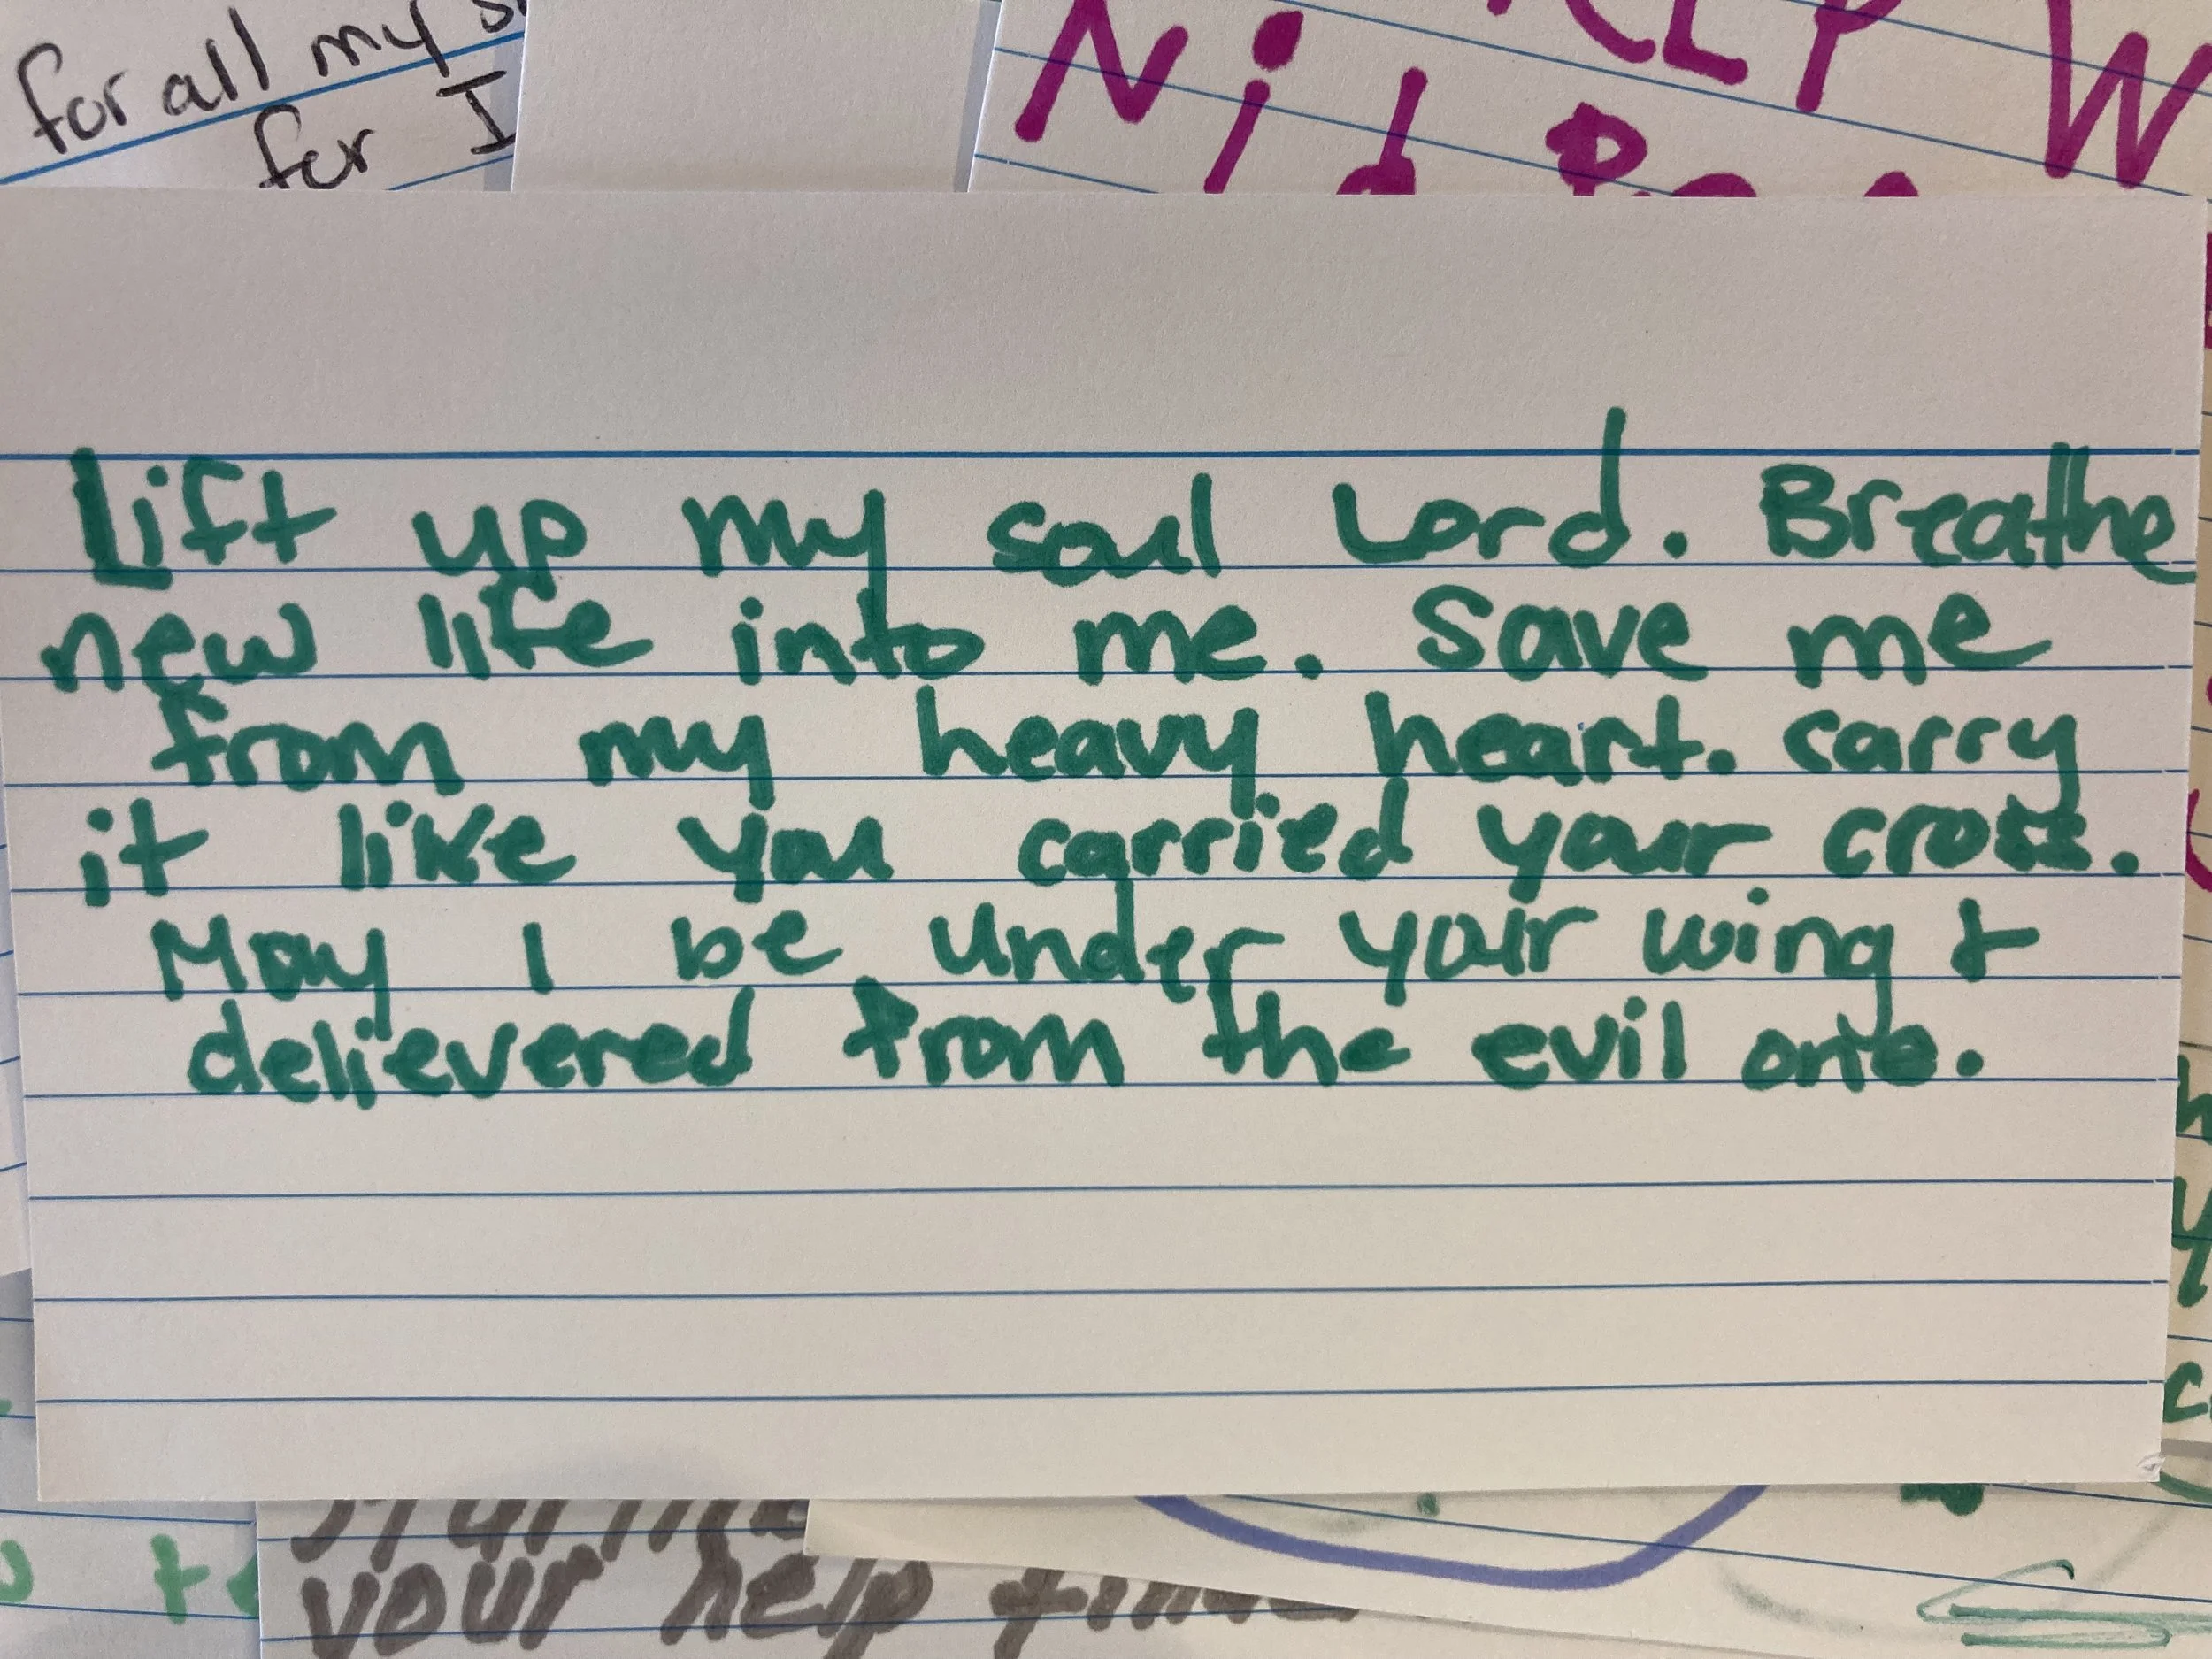 for all my
for I
Lift up my soul Lord. Breathe
new life into me. Save me
from my heavy heart. carry
it like you carried your cross.
May I be under your wing &
delievered from the evil one.
your help